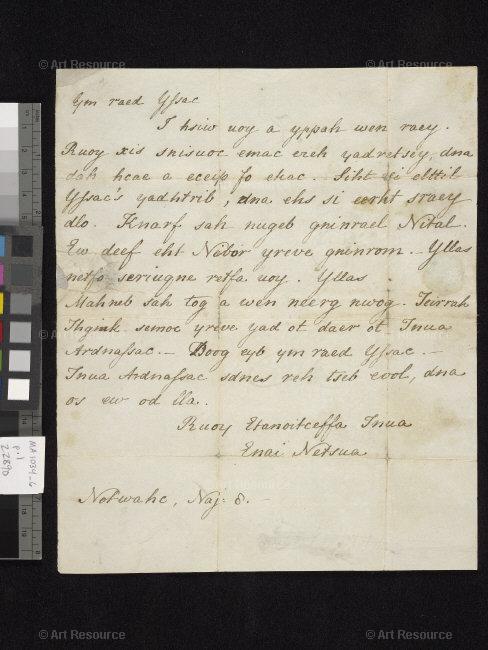 © Art Resource
© Art Resource
Ym raed Yssac
I hsiw uoy a yppah wen raey.
Ruoy xis snisuoc emac ereh yadretsey, dna
dah hcae a eceip fo ekac. Siht si elttil
Yssac's yadhtrib, dna ehs si eerht sraey
dlo. Knarf sah nugeb gninrael Nital.
Ew deef eht Nebor yreve gninrom. — Yllas
netfo seriuqne retfa uoy. Yllas
Mahneb sah tog a wen neerg nwog. Teirrah
Thgink semoc yreve yad ot daer ot Tnua
Ardnassac. — Doog eyb ym raed Yssac. —
Tnua Ardnassac sdnes reh tseb evol, dna
os ew od lla.
Ruoy Etanoitceffa Tnua
Enaj Netsua
Notwahc, Naj. 8. —
MA 1034_6
p. 1
© Art Resource
© Art Resource
© Art Resource
© Art Resource